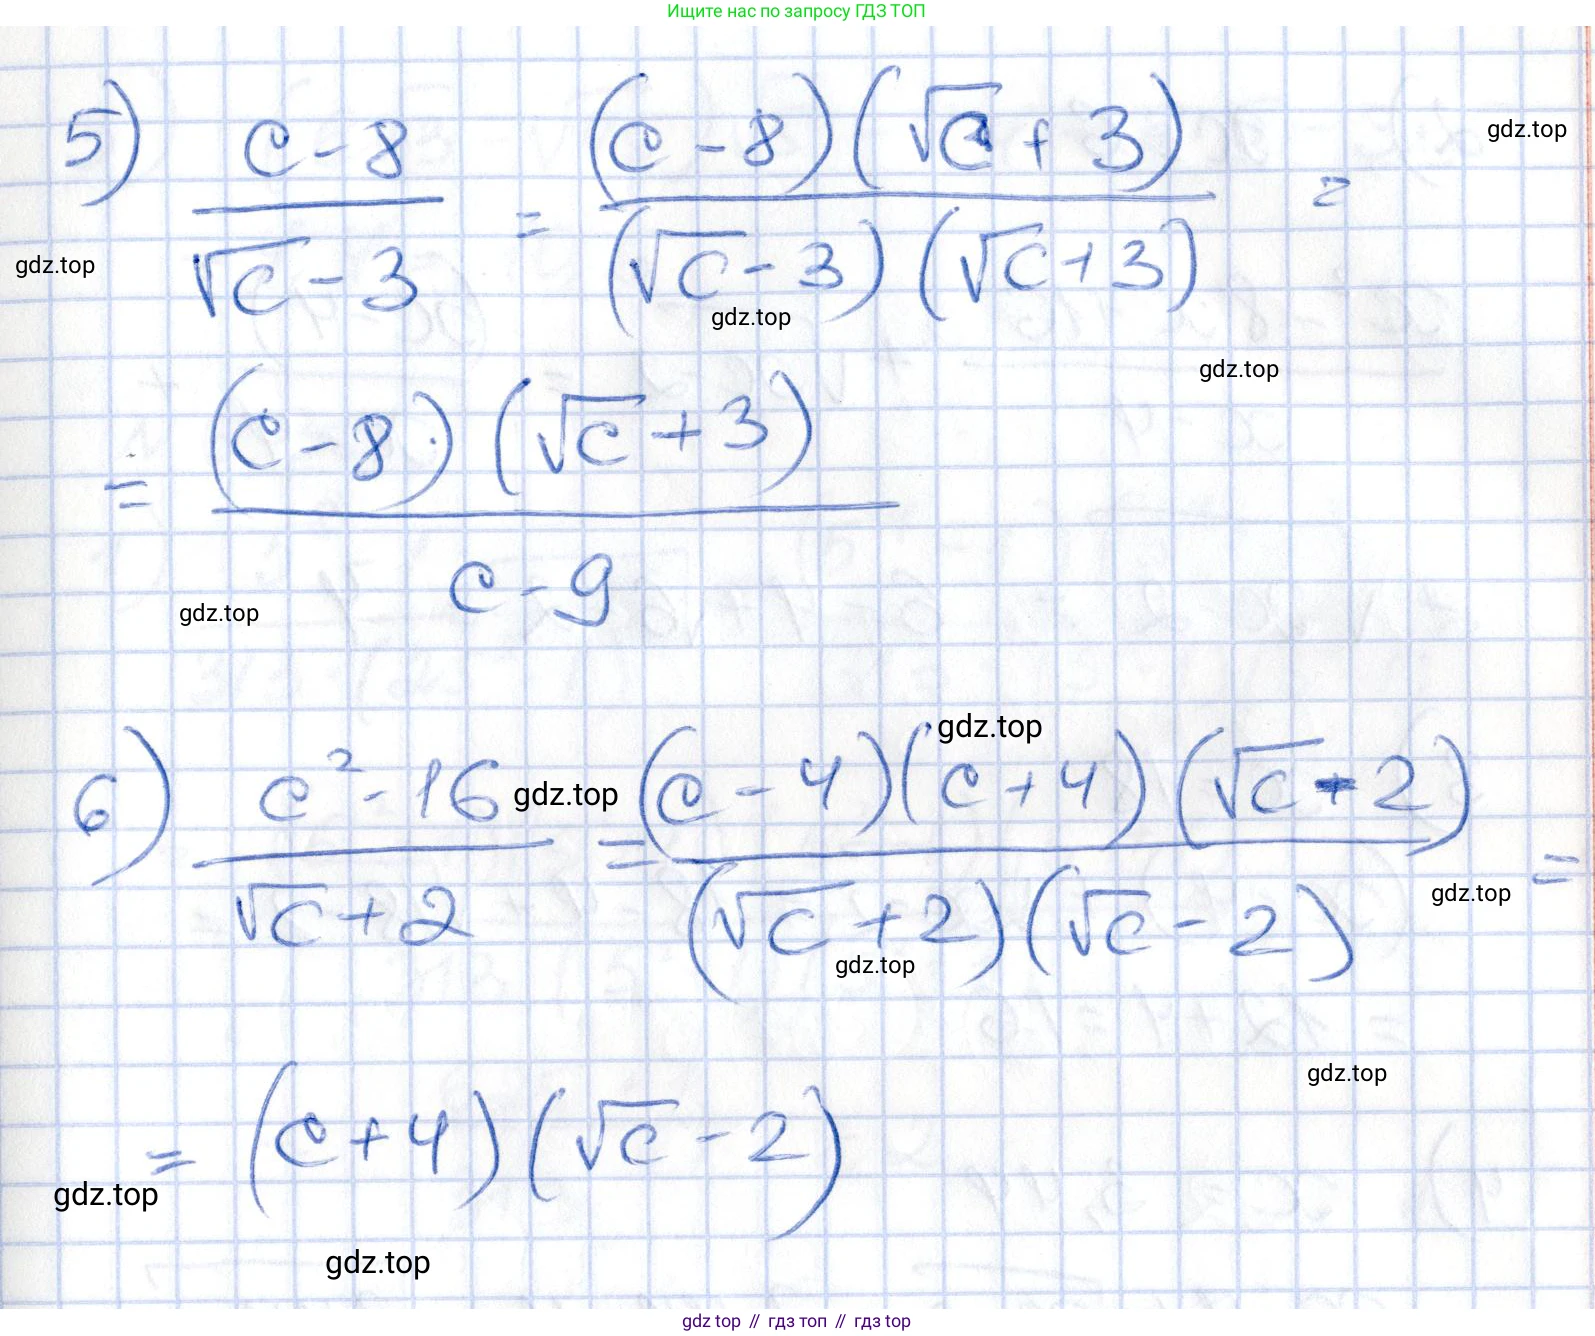 Ищите нас по запросу ГДЗ ТОП
5) (c - 8)/(√c - 3) = ((c - 8)(√c + 3))/((√c - 3)(√c + 3)) =
gdz.top
gdz.top
gdz.top
gdz.top
= ((c - 8)(√c + 3))/(c - 9)
gdz.top
gdz.top
6) (c² - 16)/(√c + 2) = ((c - 4)(c + 4)(√c - 2))/((√c + 2)(√c - 2)) =
gdz.top
gdz.top
gdz.top
gdz.top
= (c + 4)(√c - 2)
gdz.top
gdz.top
gdz.top // гдз топ // гдз top